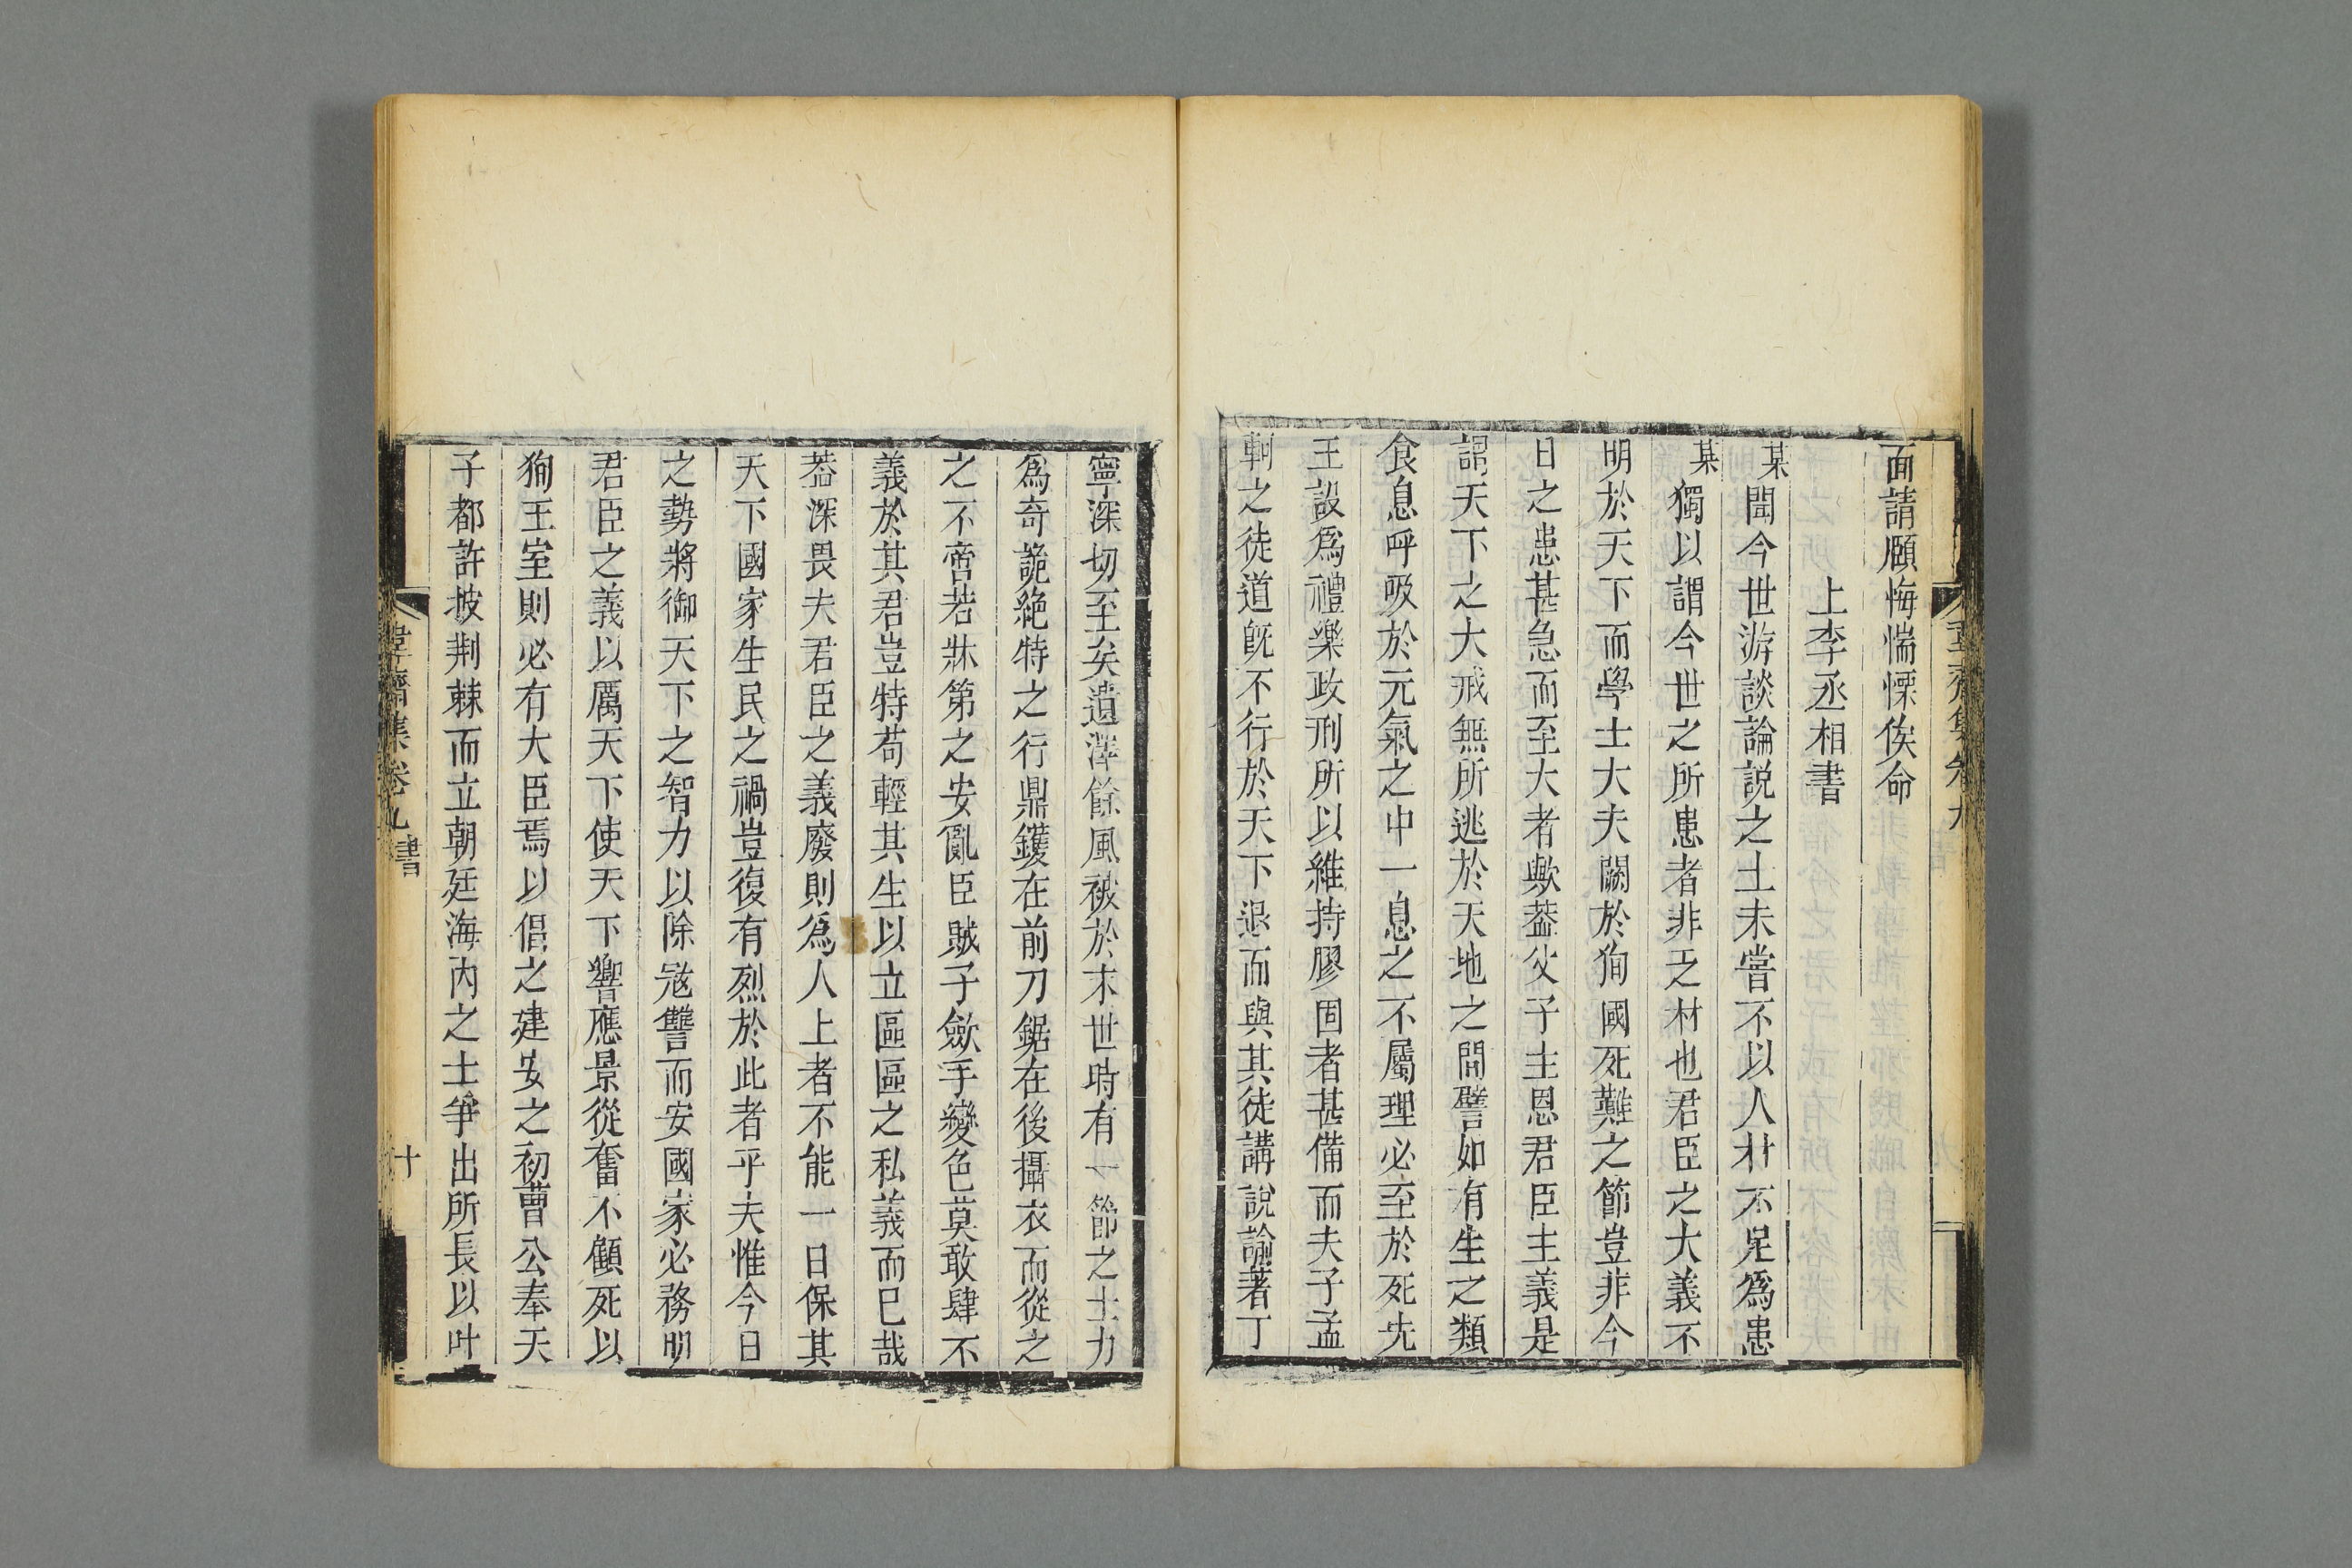 面請願悔惴慄俟命
上李丞相書
某聞今世游談論説之士未嘗不以人才不足爲患
某獨以謂今世之所患者非乏材也君臣之大義不
明於天下而學士大夫闕於狥國死難之節豈非今
日之患甚急而至大者歟葢父子主恩君臣主義是
謂天下之大戒無所逃於天地之間譬如有生之類
食息呼吸於元氣之中一息之不屬理必至於死先
王設爲禮樂政刑所以維持膠固者甚備而夫子孟
軻之徒道旣不行於天下退而與其徒講説論著丁
寧深切至矣遺澤餘風被於末世時有一節之士力
爲奇詭絶特之行鼎鑊在前刀鋸在後攝衣而從之
之不啻若牀第之安亂臣賊子歛手變色莫敢肆不
義於其君豈特苟輕其生以立區區之私義而已哉
葢深畏夫君臣之義廢則爲人上者不能一日保其
天下國家生民之禍豈復有烈於此者乎夫惟今日
之勢將御天下之智力以除冦讐而安國家必務明
君臣之義以厲天下使天下響應景從奮不顧死以
狥王室則必有大臣焉以倡之建安之初曹公奉天
子都許披荆棘而立朝廷海内之士爭出所長以叶
韋齋集卷九 書 十